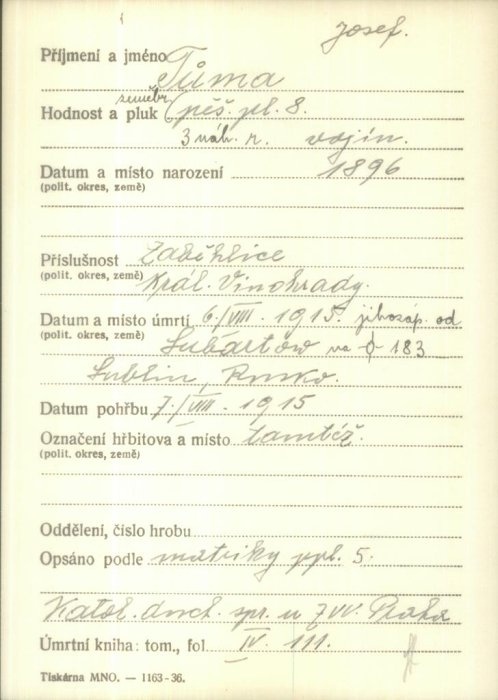 Josef.
Příjmení a jméno Tůma
zeměbr.
Hodnost a pluk pěš. pl. 8.
3 náh. r. vojín.
Datum a místo narození 1896
(polit. okres, země)
Příslušnost Záběhlice
(polit. okres, země) Král. Vinohrady.
Datum a místo úmrtí 6./VIII. 1915. jihozáp. od
(polit. okres, země) Lubartów na 183
Lublin, Rusko.
Datum pohřbu 7./VIII. 1915
Označení hřbitova a místo tamtéž.
(polit. okres, země)
Oddělení, číslo hrobu
Opsáno podle matriky ppl. 5.
Katol. duch. spr. u ZVV. Praha
Úmrtní kniha: tom., fol. IV. 111.
Tiskárna MNO. — 1163-36.